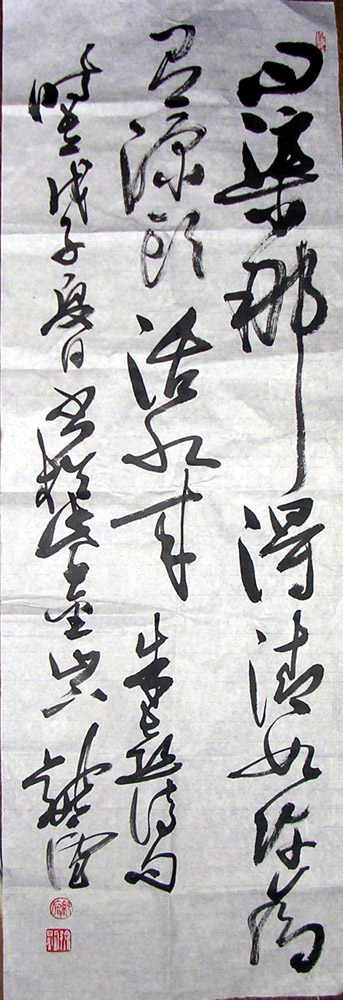 问渠那得清如许为
有源头活水来 朱熹诗句
时在戊子夏日书于